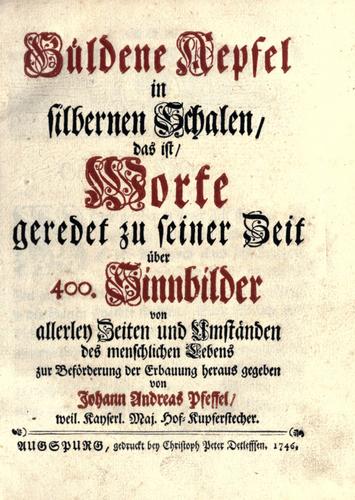 Güldene Aepfel
in
silbernen Schalen/
das ist/
Worte
geredet zu seiner Zeit
über
400. Sinnbilder
von
allerley Zeiten und Umständen
des menschlichen Lebens
zur Beförderung der Erbauung heraus gegeben
von
Johann Andreas Pfeffel/
weil. Kayserl. Maj. Hof-Kupferstecher.
AUGSPURG, gedruckt bey Christoph Peter Detlefssen. 1746.